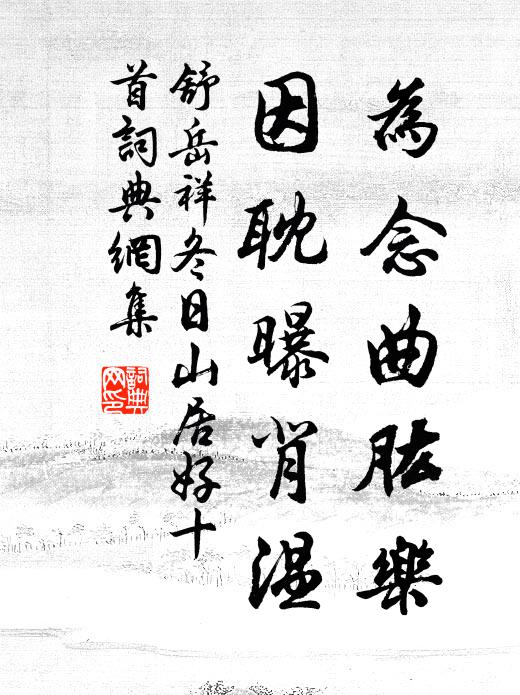 為念曲肱樂
因耽曝背温
舒岳祥冬日山居好十
首詞典網集
詞典
网印